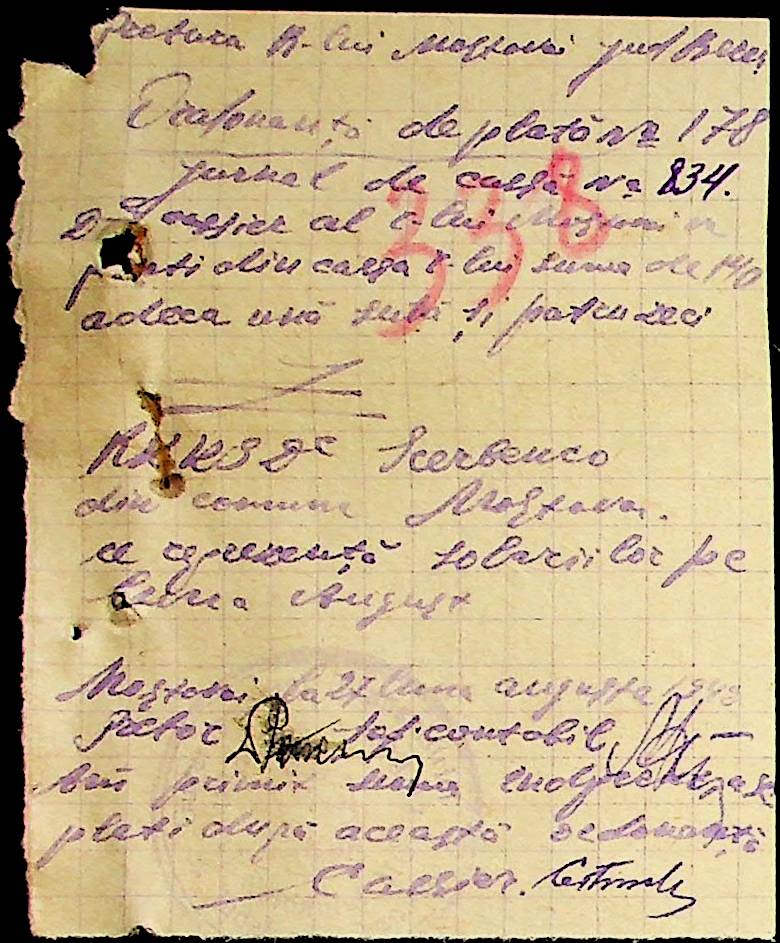 Pretura R-lui Mostovoi jud
Ordonanță de plată Nr 178
jurnal de cassă Nr 834.
338
casier al r-lui Mostovoi
plăti din cassa r-lui suma de 140
adeca una sută și patruzeci
Scerbenco
din comuna Mostovoi.
ce reprezentă solariilor pe
luna August
Mostovoi la 27 luna augusta 1943
Pretor contabil
Am primit suma
plati după această ordonanță
Cassier.